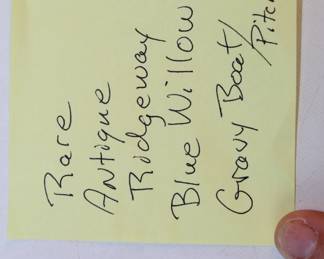 Rare
Antique
Ridgeway
Blue Willow
Gravy Boat/